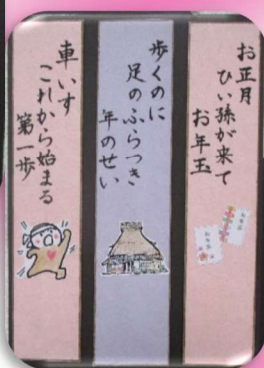 お正月
ひい孫が来て
お年玉
歩くのに
足のふらつき
年のせい
車いす
これから始まる
第一歩